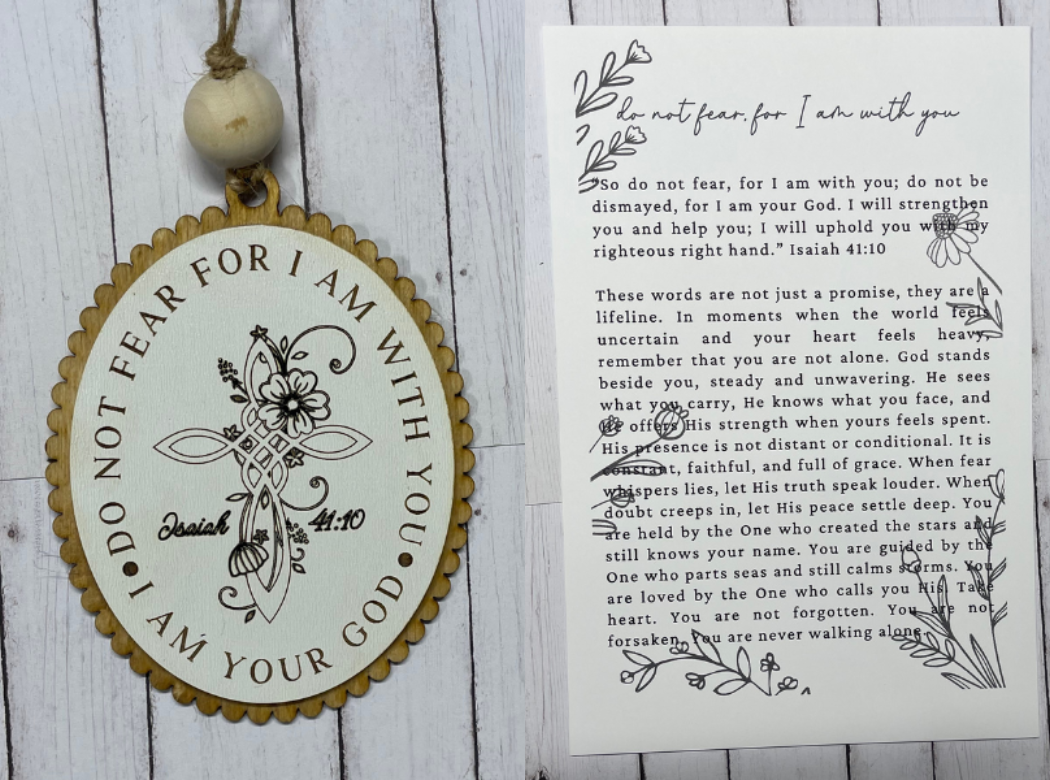 DO NOT FEAR FOR I AM WITH YOU
I AM YOUR GOD
Isaiah 41:10
do not fear, for I am with you
"So do not fear, for I am with you; do not be
dismayed, for I am your God. I will strengthen
you and help you; I will uphold you with my
righteous right hand." Isaiah 41:10
These words are not just a promise, they are a
lifeline. In moments when the world feels
uncertain and your heart feels heavy,
remember that you are not alone. God stands
beside you, steady and unwavering. He sees
what you carry, He knows what you face, and
He offers His strength when yours feels spent.
His presence is not distant or conditional. It is
constant, faithful, and full of grace. When fear
whispers lies, let His truth speak louder. When
doubt creeps in, let His peace settle deep. You
are held by the One who created the stars and
still knows your name. You are guided by the
One who parts seas and still calms storms. You
are loved by the One who calls you His. Take
heart. You are not forgotten. You are not
forsaken. You are never walking alone.